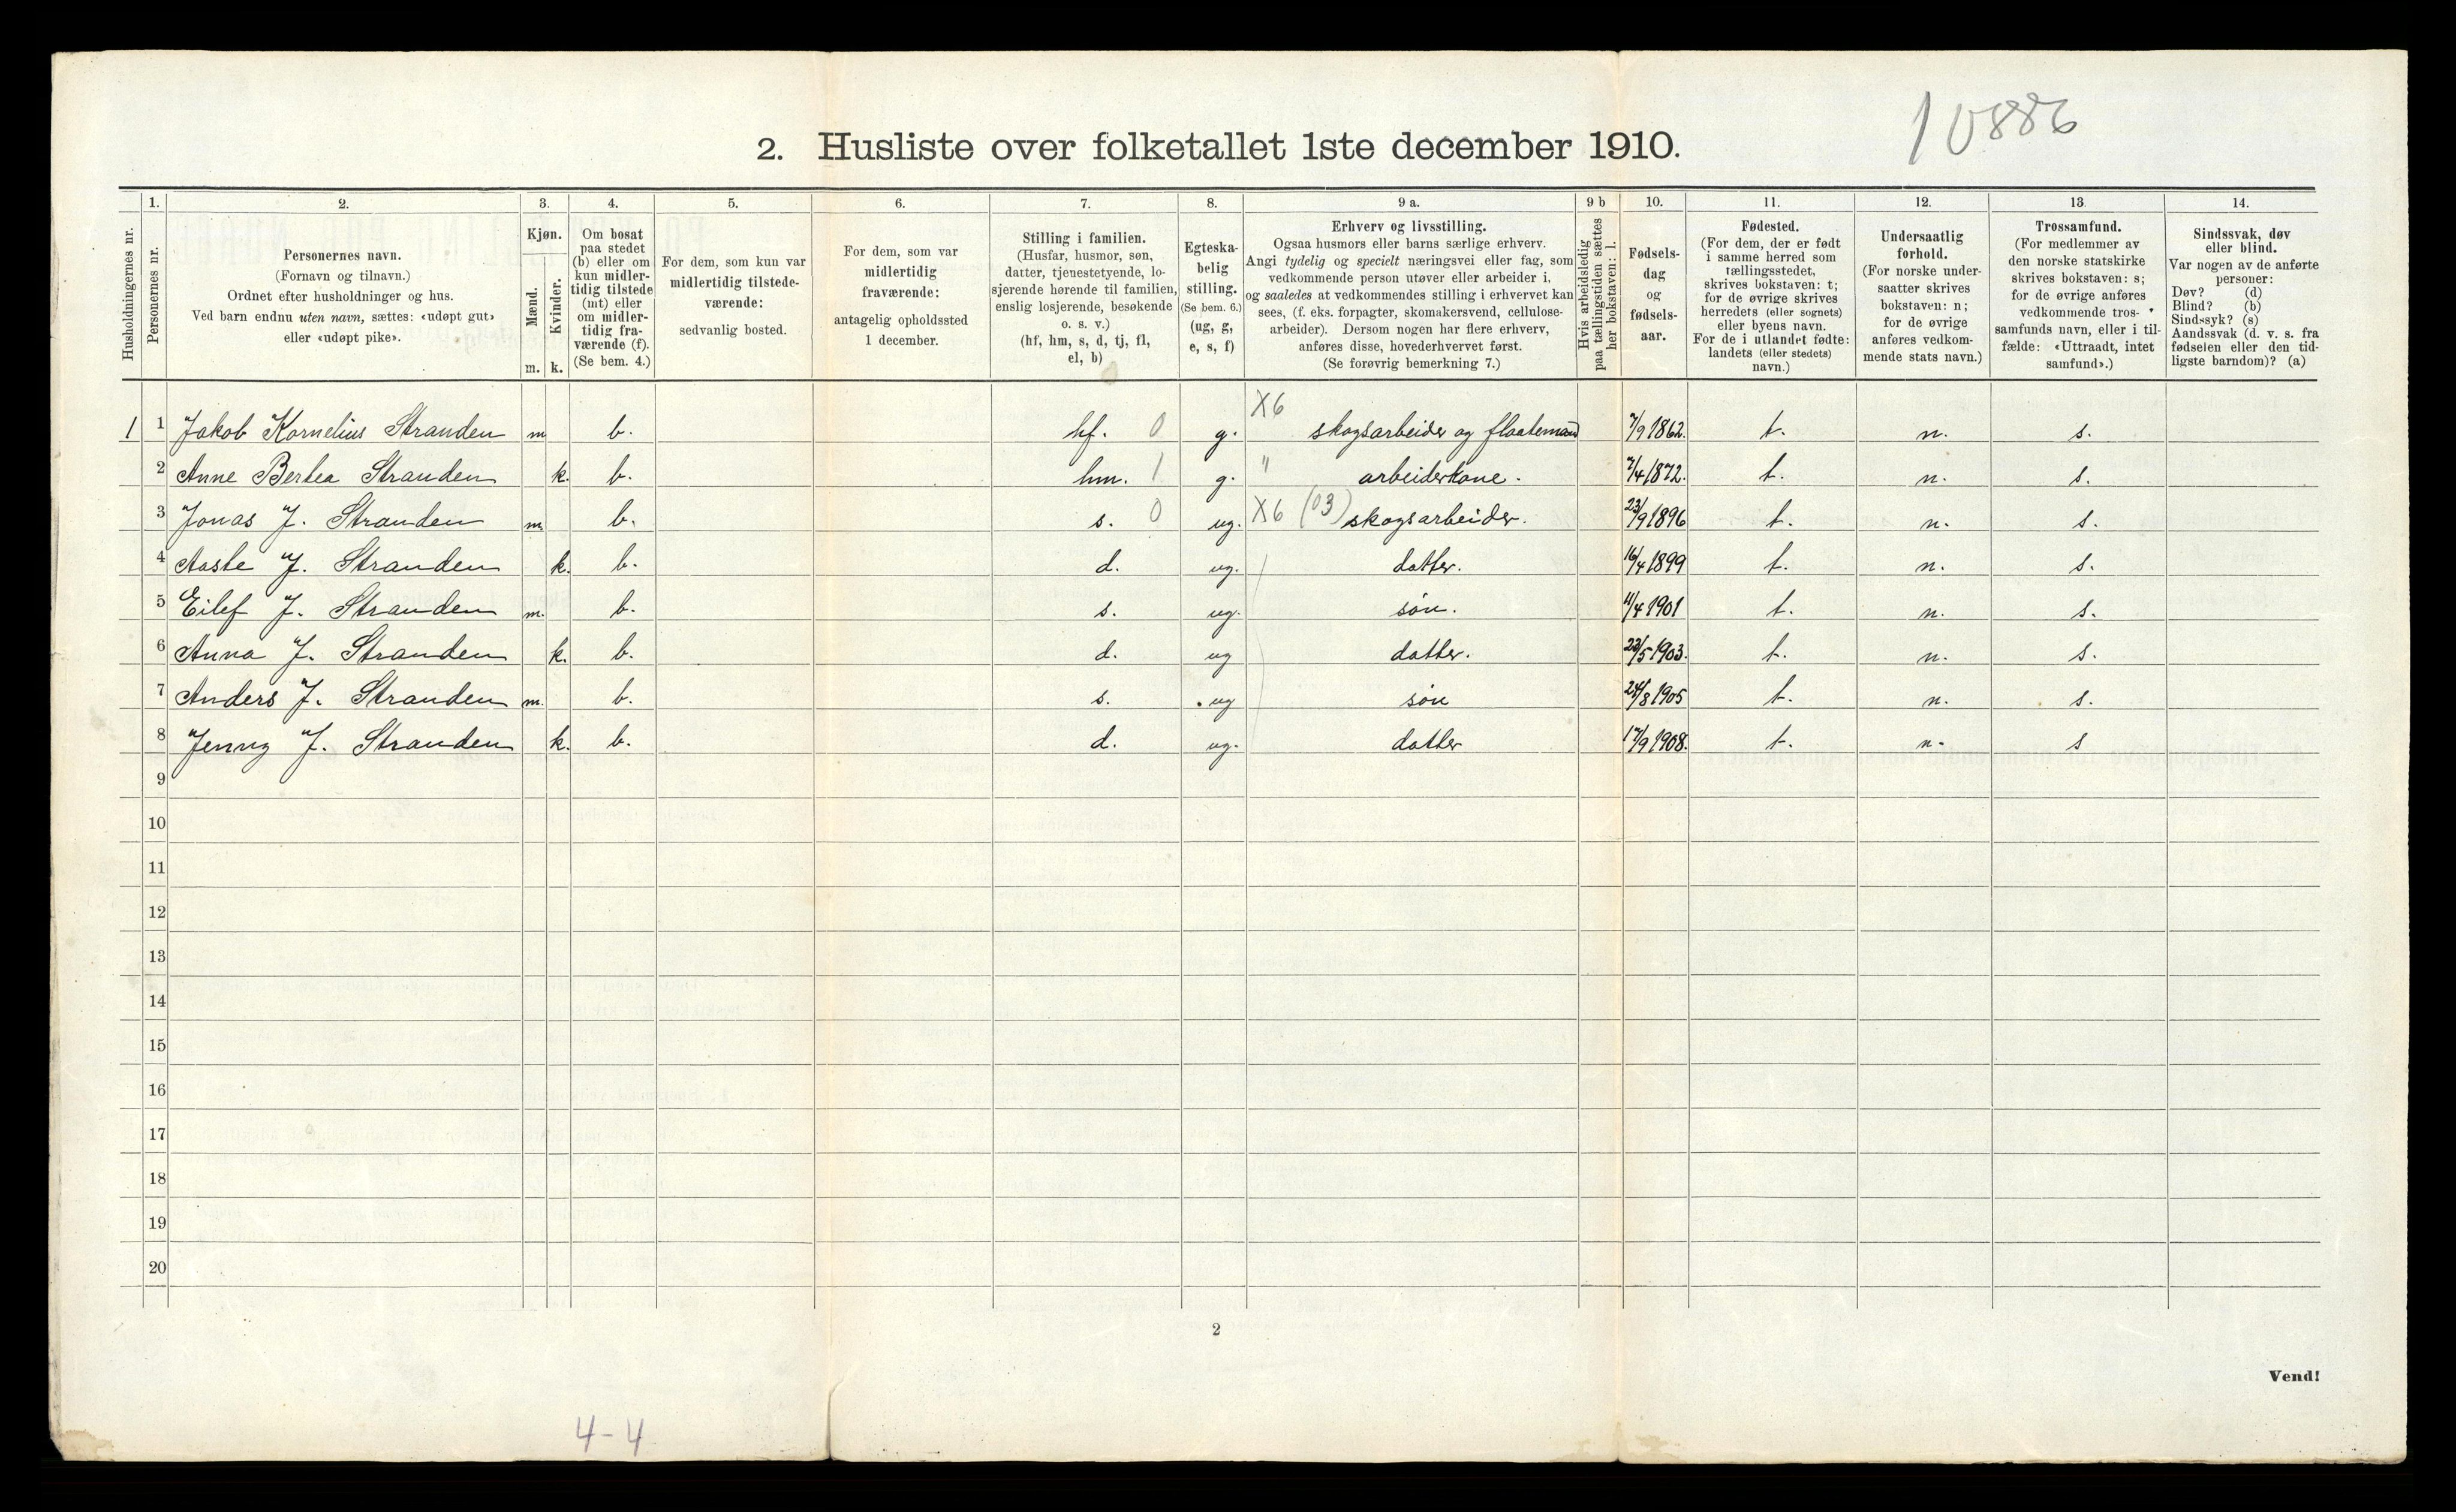 10886
2. Husliste over folketallet 1ste december 1910.
Husholdningernes nr.
1.
Personernes nr.
2.
Personernes navn.
(Fornavn og tilnavn.)
Ordnet efter husholdninger og hus.
Ved barn endnu uten navn, sættes: «udøpt gut»
eller «udøpt pike».
3.
Kjøn.
Mænd.
Kvinder.
m. k.
4.
Om bosat
paa stedet
(b) eller om
kun midler-
tidig tilstede
(mt) eller
om midler-
tidig fra-
værende (f).
(Se bem. 4.)
5.
For dem, som kun var
midlertidig tilstede-
værende:
sedvanlig bosted.
6.
For dem, som var
midlertidig
fraværende:
antagelig opholdssted
1 december.
7.
Stilling i familien.
(Husfar, husmor, søn,
datter, tjenestetyende, lo-
sjerende hørende til familien,
enslig losjerende, besøkende
o. s. v.)
(hf, hm, s, d, tj, fl,
el, b)
8.
Egteska-
belig
stilling.
(Se bem. 6.)
(ug, g,
e, s, f)
9 a.
Erhverv og livsstilling.
Ogsaa husmors eller barns særlige erhverv.
Angi tydelig og specielt næringsvei eller fag, som
vedkommende person utøver eller arbeider i,
og saaledes at vedkommendes stilling i erhvervet kan
sees, (f. eks. forpagter, skomakersvend, cellulose-
arbeider). Dersom nogen har flere erhverv,
anføres disse, hovederhvervet først.
(Se forøvrig bemerkning 7.)
9 b
Hvis arbeidsledig
paa tællingstiden sættes
her bokstaven: l.
10.
Fødsels-
dag
og
fødsels-
aar.
11.
Fødested.
(For dem, der er født
i samme herred som
tællingsstedet,
skrives bokstaven: t;
for de øvrige skrives
herredets (eller sognets)
eller byens navn.
For de i utlandet fødte:
landets (eller stedets)
navn.)
12.
Undersaatlig
forhold.
(For norske under-
saatter skrives
bokstaven: n;
for de øvrige
anføres vedkom-
mende stats navn.)
13.
Trossamfund.
(For medlemmer av
den norske statskirke
skrives bokstaven: s;
for de øvrige anføres
vedkommende tros-
samfunds navn, eller i til-
fælde: «Uttraadt, intet
samfund».)
14.
Sindssvak, døv
eller blind.
Var nogen av de anførte
personer:
Døv? (d)
Blind? (b)
Sindssyk? (s)
Aandssvak (d. v. s. fra
fødselen eller den tid-
ligste barndom)? (a)
1 1 Jakob Kornelius Stranden m b. hf. 0 g. X6 skogsarbeider og flaatemand 7/9 1862. t. n. s.
2 Anne Bertea Stranden k. b. hm. 1 g. " arbeiderkone. 7/4 1872. t. n. s.
3 Jonas J. Stranden m b. s. 0 ug. X6 (03) skogsarbeider. 23/9 1896 t. n. s.
4 Aaste J. Stranden k. b. d. ug. datter. 16/4 1899 t. n. s.
5 Eilef J. Stranden m. b. s. ug. søn. 11/4 1901 t. n. s.
6 Anna J. Stranden k. b. d. ug datter. 23/5 1903. t. n. s.
7 Anders J. Stranden m. b. s. ug søn 24/8 1905 t. n. s.
8 Jenny J. Stranden k. b. d. ug. datter 17/9 1908. t. n. s
9
10
11
12
13
14
15
16
17
18
19
20
2
Vend!
4-4